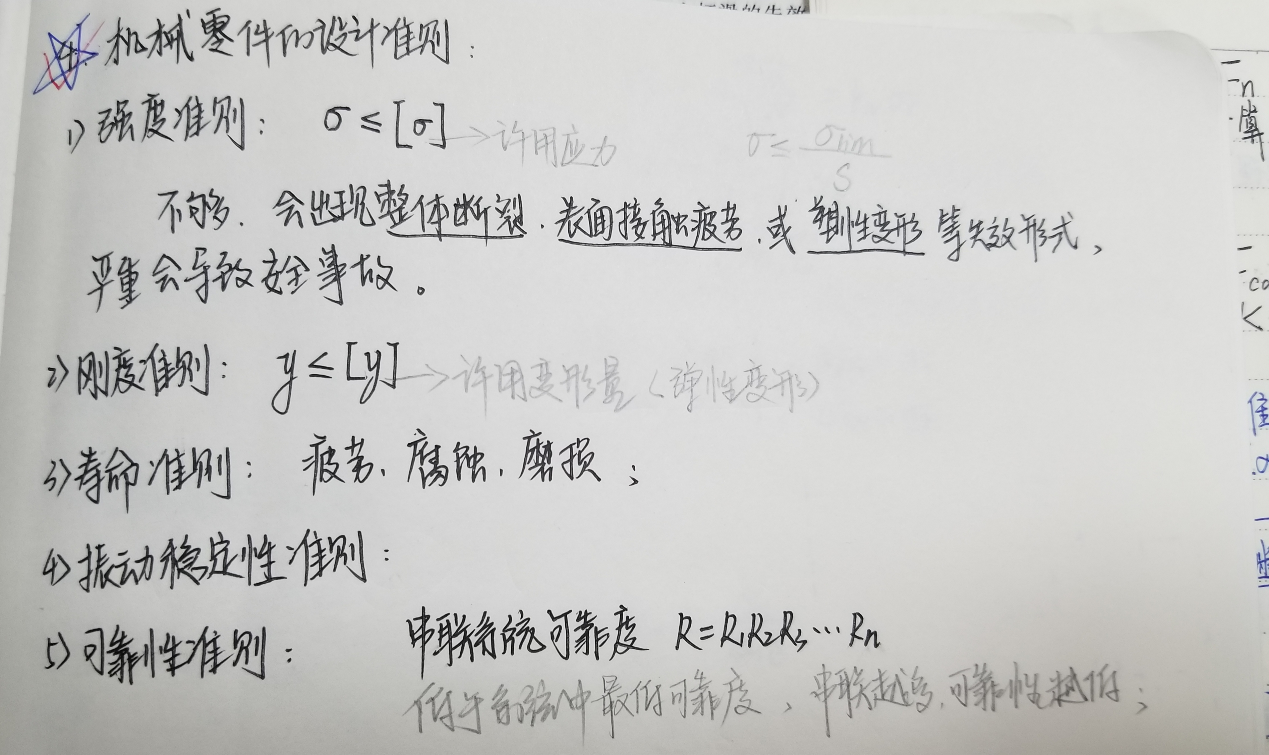 4. 机械零件的设计准则:
1) 强度准则: σ ≤ [σ] → 许用应力 σ ≤ σlim/S
不够、会出现整体断裂、表面接触疲劳、或塑性变形等失效形式,
严重会导致安全事故。
2) 刚度准则: y ≤ [y] → 许用变形量(弹性变形)
3) 寿命准则: 疲劳、腐蚀、磨损;
4) 振动稳定性准则:
5) 可靠性准则: 串联系统可靠度 R=R₁R₂R₃…Rn
低于系统中最低可靠度、串联越多,可靠性越低;
n
算
co
<